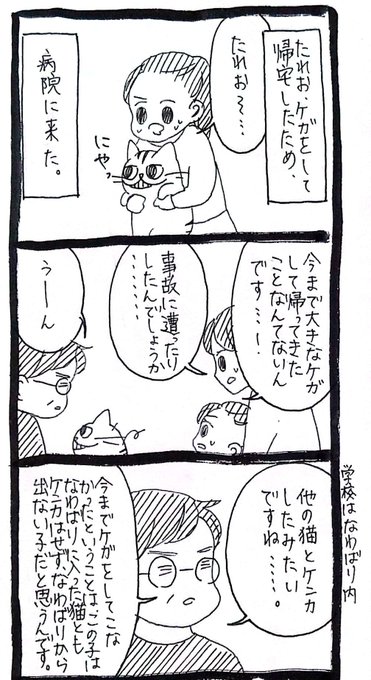 たれお、ケガをして
帰宅したため、
たれお〜…
にゃっ
病院に来た。
今まで大きなケガ
して帰ってきた
ことなんてないん
です…!
事故に遭ったり
したんでしょうか
……
うーん
学校はなわばり内
他の猫とケンカ
したみたい
ですね……。
今までケガをしてこな
かったということは、この子は
なわばりに入った猫とも
ケンカはせず、なわばりから
出ない子だと思うんです。